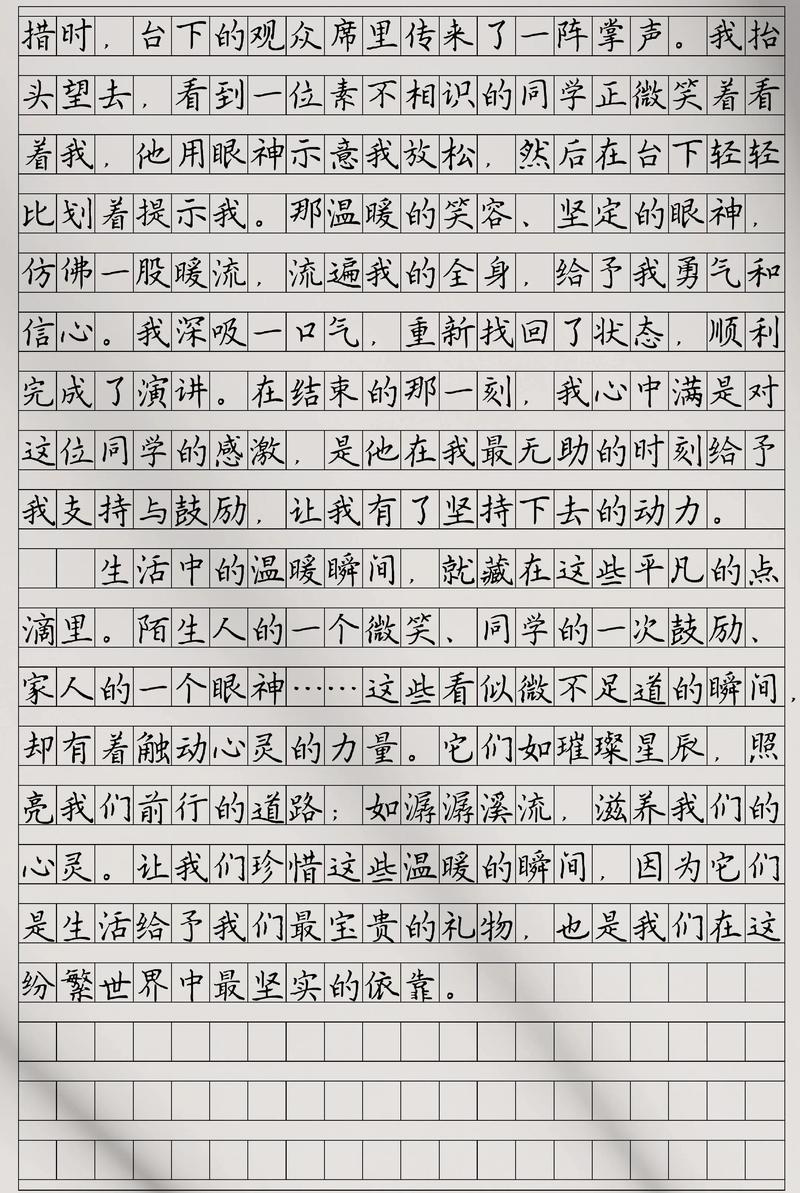 措时，台下的观众席里传来了一阵掌声。我抬
头望去，看到一位素不相识的同学正微笑着看
着我，他用眼神示意我放松，然后在台下轻轻
比划着提示我。那温暖的笑容、坚定的眼神，
仿佛一股暖流，流遍我的全身，给予我勇气和
信心。我深吸一口气，重新找回了状态，顺利
完成了演讲。在结束的那一刻，我心中满是对
这位同学的感激，是他在我最无助的时刻给予
我支持与鼓励，让我有了坚持下去的动力。
生活中的温暖瞬间，就藏在这些平凡的点
滴里。陌生人的一个微笑、同学的一次鼓励、
家人的一个眼神……这些看似微不足道的瞬间，
却有着触动心灵的力量。它们如璀璨星辰，照
亮我们前行的道路；如潺潺溪流，滋养我们的
心灵。让我们珍惜这些温暖的瞬间，因为它们
是生活给予我们最宝贵的礼物，也是我们在这
纷繁世界中最坚实的依靠。